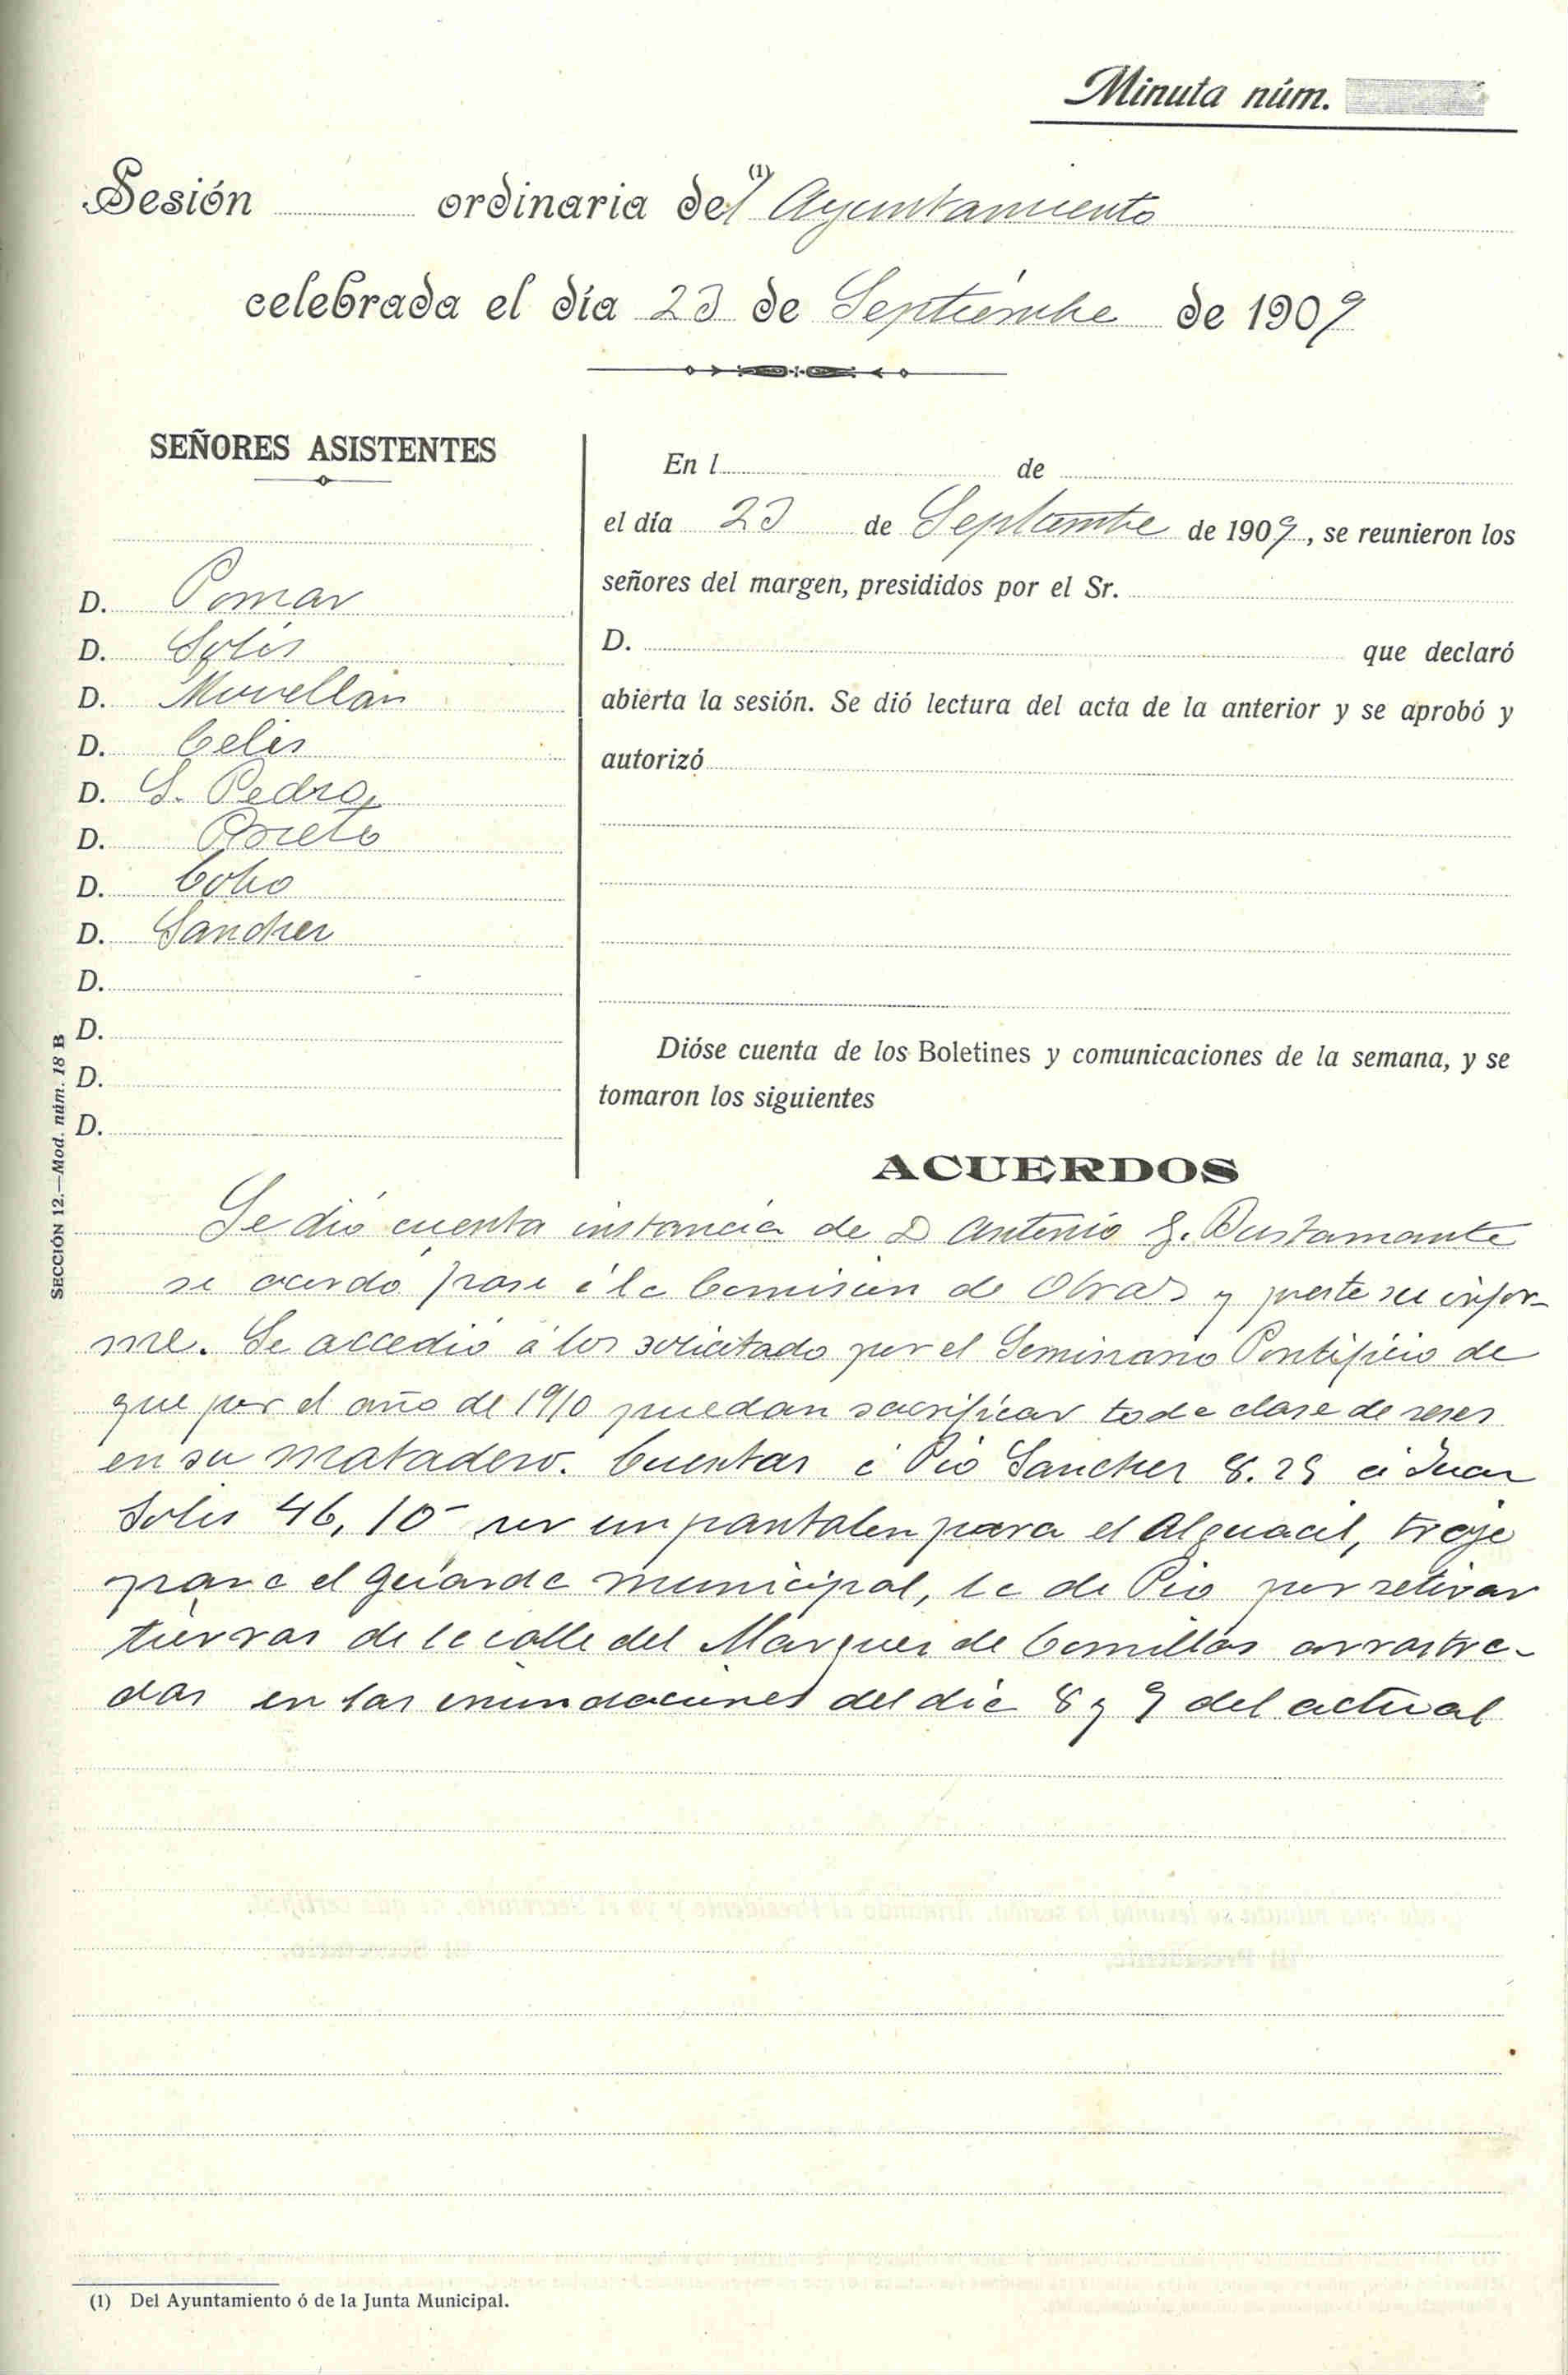 Minuta núm.
Sesión ordinaria del (1) Ayuntamiento
celebrada el día 23 de Septiembre de 1909
SEÑORES ASISTENTES
D. Pomar
D. Solis
D. Movellan
D. Celis
D. S. Pedro
D. Prieto
D. Cobo
D. Sanchez
D.
D.
D.
D.
SECCIÓN 12.—Mod. núm. 18 B
En l de
el día 23 de Septiembre de 1909, se reunieron los
señores del margen, presididos por el Sr.
D. que declaró
abierta la sesión. Se dió lectura del acta de la anterior y se aprobó y
autorizó
Dióse cuenta de los Boletines y comunicaciones de la semana, y se
tomaron los siguientes
ACUERDOS
Se dió cuenta instancia de D Antonio G. Bustamante
se acordo pase á la Comision de Obras y preste su infor-
me. Se accedió á los solicitado por el Seminario Pontificio de
que por el año de 1910 puedan sacrificar toda clase de reses
en su matadero. Cuentas á Pio Sanchez 8.25 á Juan
Solis 46,10 por un pantalon para el Alguacil, traje
para el guarda municipal, la de Pio por retirar
tierras de la calle del Marques de Comillas arrastra-
das en las inundaciones del dia 8 y 9 del actual
(1) Del Ayuntamiento ó de la Junta Municipal.